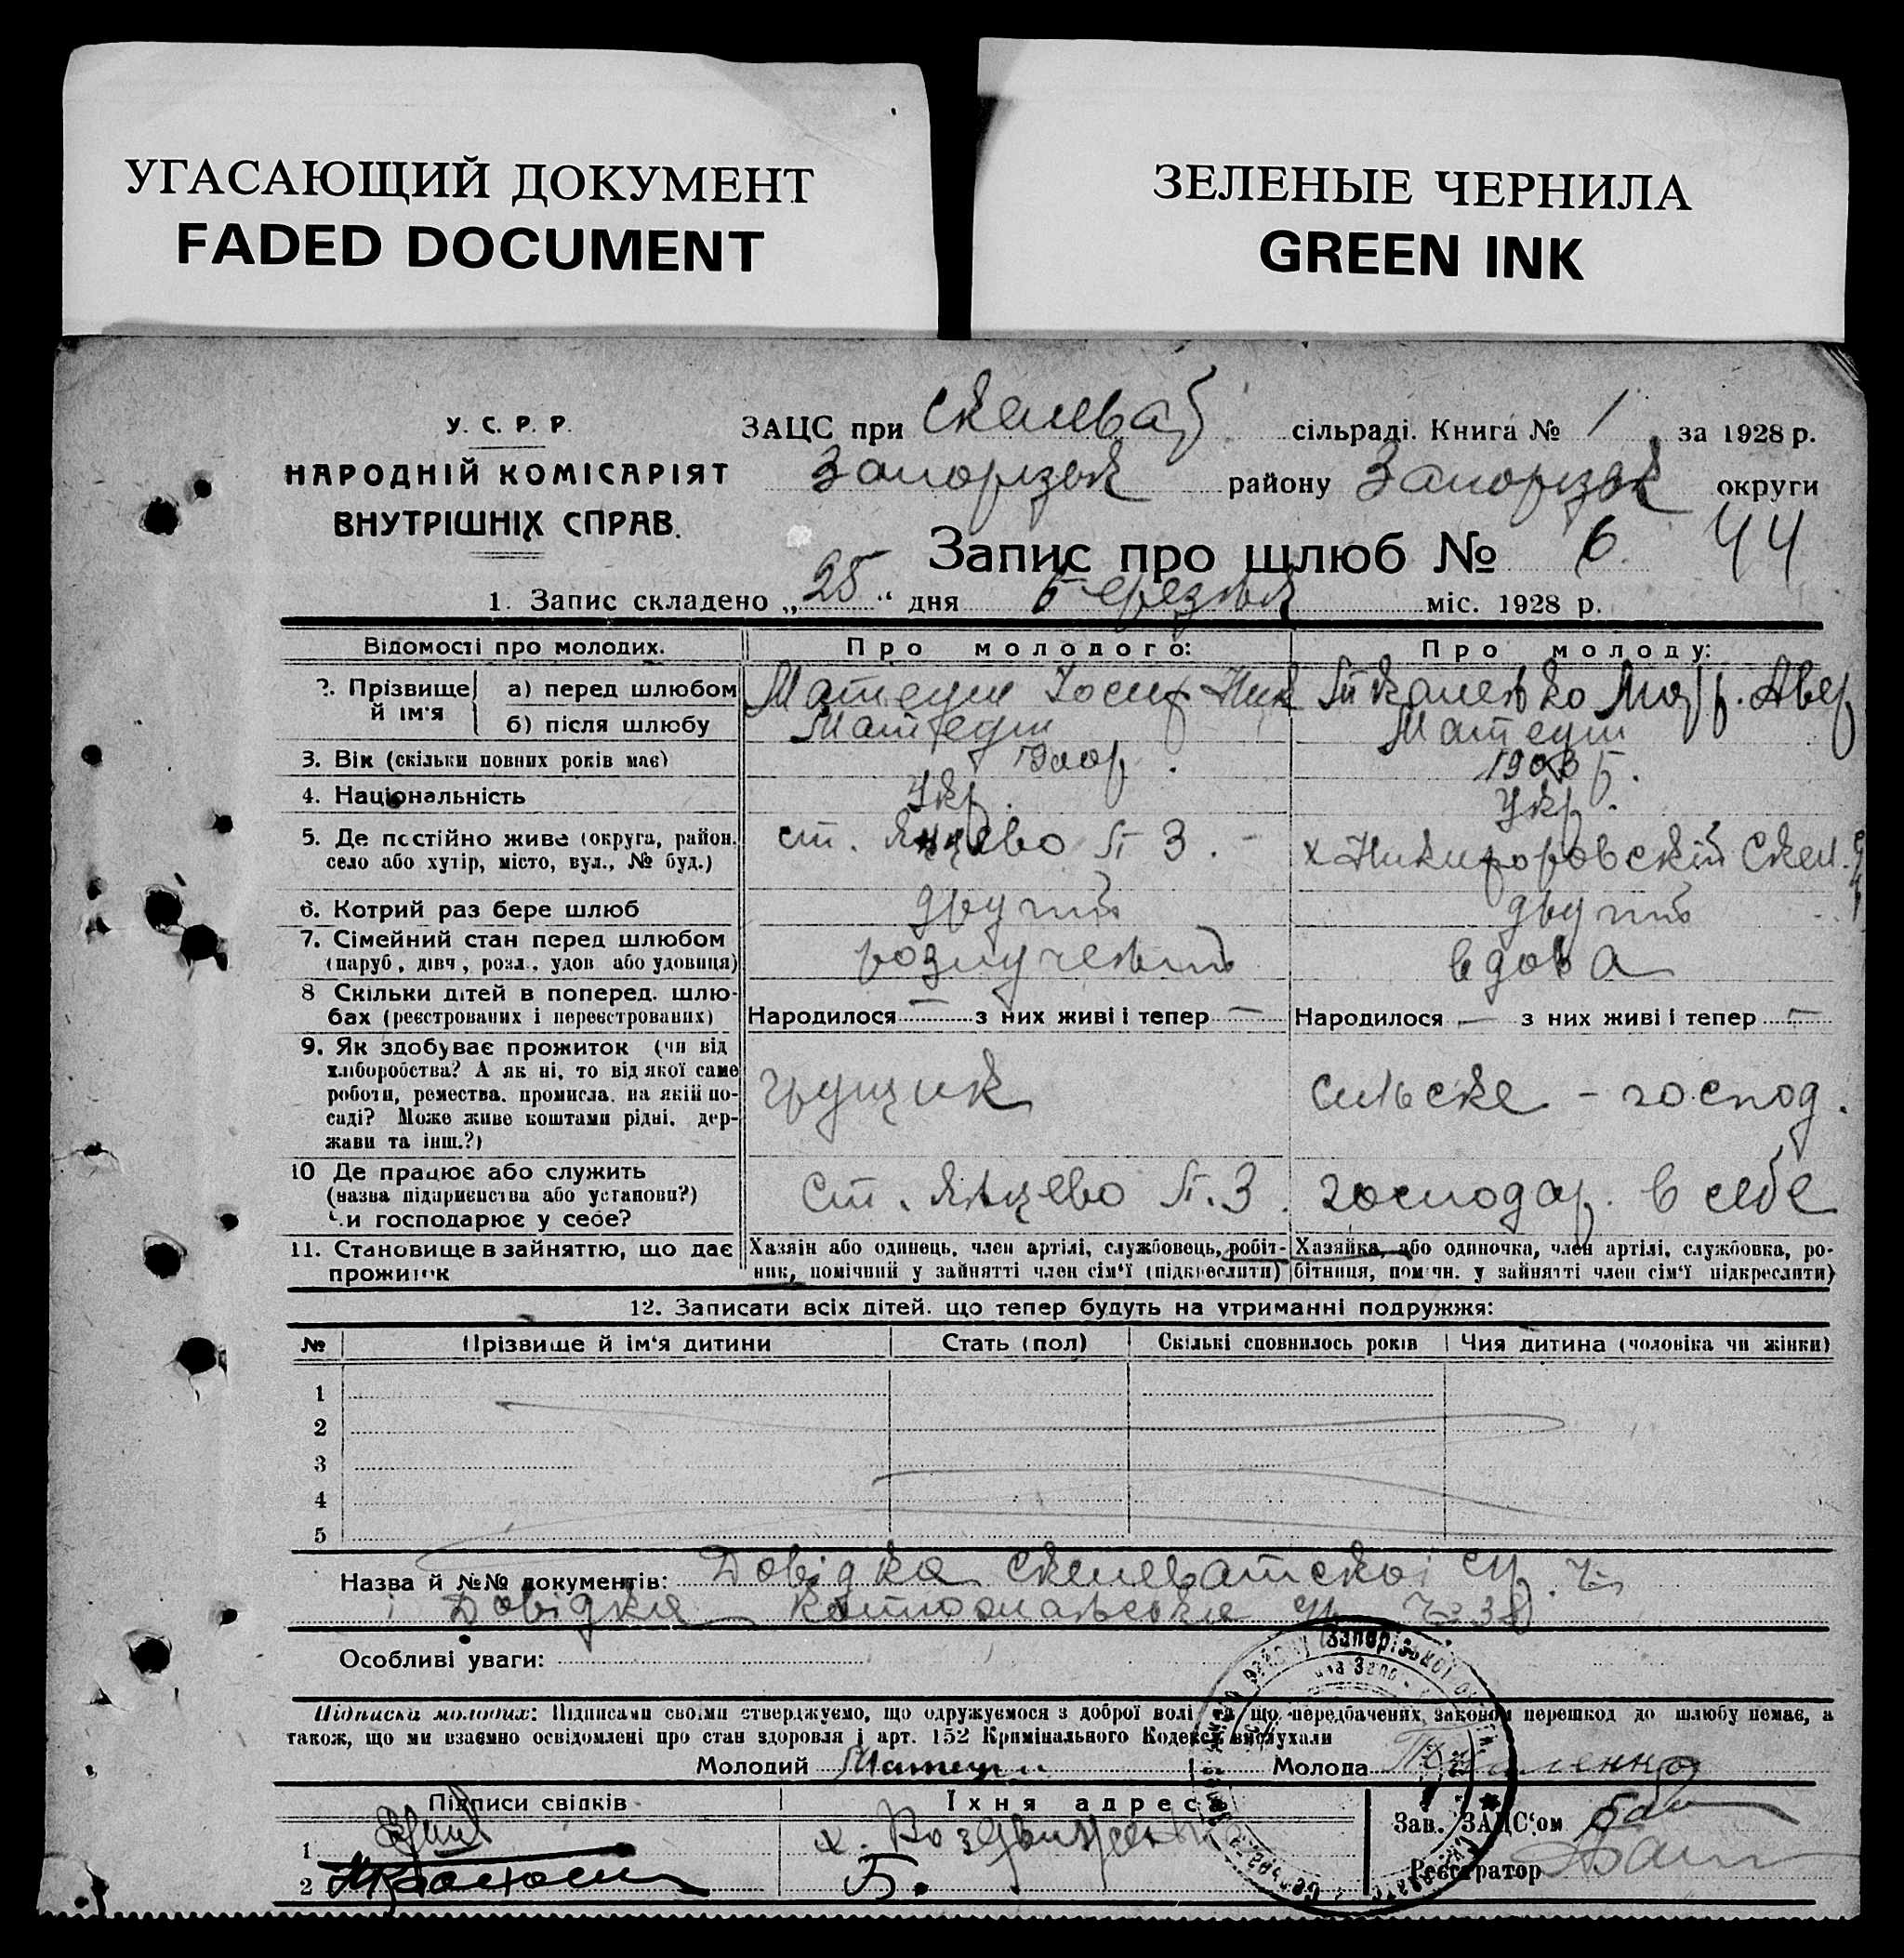 УГАСАЮЩИЙ ДОКУМЕНТ
FADED DOCUMENT
ЗЕЛЕНЫЕ ЧЕРНИЛА
GREEN INK
У. С. Р. Р.
НАРОДНІЙ КОМІСАРІЯТ
ВНУТРІШНІХ СПРАВ.
ЗАЦС при Скелеват сільраді. Книга № 1 за 1928 р.
Запорізьк району Запорізьк округи
Запис про шлюб № 6. 44
1. Запис складено „25“ дня березня міс. 1928 р.
Відомості про молодих. Про молодого: Про молоду:
2. Прізвище й ім'я
а) перед шлюбом Матеуш Йосиф Ник Ткаленко Авер
б) після шлюбу Матеуш Матеуш
3. Вік (скільки повних років має)
4. Національність Укр. Укр.
5. Де постійно живе (округа, район, село або хутір, місто, вул., № буд.) ст. Янцево П З. х Никифоровский Скел.
6. Котрий раз бере шлюб другий другий
7. Сімейний стан перед шлюбом (паруб, дівч, розл., удов або удовиця) розлучений вдова
8 Скільки дітей в поперед. шлюбах (реєстрованих і нереєстрованих) Народилося — з них живі і тепер — Народилося — з них живі і тепер —
9. Як здобуває прожиток (чи від хліборобства? А як ні, то від якої саме роботи, ремества, промисла, на якій посаді? Може живе коштами рідні, держави та інш.?) грущик сільске - господ.
10 Де працює або служить (назва підприємства або установи?) Чи господарює у себе? ст. Янцево П. З. господар. в себе
11. Становище в зайняттю, що дає прожиток
Хазяїн або одинець, член артілі, службовець, робітник, помічний у зайнятті член сім'ї (підкреслити)
Хазяйка, або одиночка, член артілі, службовка, робітниця, помічн. у зайнятті член сім'ї підкреслити)
12. Записати всіх дітей, що тепер будуть на утриманні подружжя:
№ Прізвище й ім'я дитини Стать (пол) Скількі сповнилось років Чия дитина (чоловіка чи жінки)
1
2
3
4
5
Назва й №№ документів: Довідка Скелеватскої ср.
і Довідка
Особливі уваги:
Підписка молодих: Підписами своїми стверджуємо, що одружуємося з доброї волі та що передбачених законом перешкод до шлюбу немає, а
також, що ми взаємно освідомлені про стан здоровля і арт. 152 Кримінального Кодексу вислухали
Молодий Матеуш Молода Ткаленко
Підписи свідків Їхня адреса Зав. ЗАЦС'ом
1
2 Б. Реєстратор